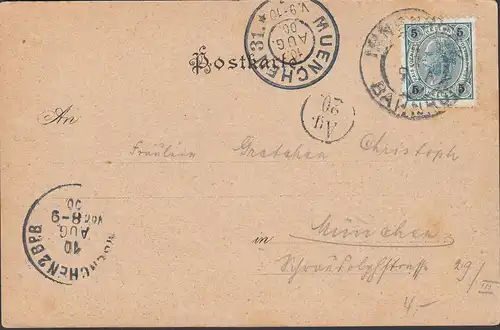 MUENCHEN 31.
10
AUG
00
V.9-10
5 5
5 5
BAHNHOF
Postkarte
Ag.
20
An
Fräulein Gretchen Christoph
in München
Schraudolphstrasse 29/III
MUENCHEN 2 B.P.B
10
AUG
00
VOR 8-9
4.-